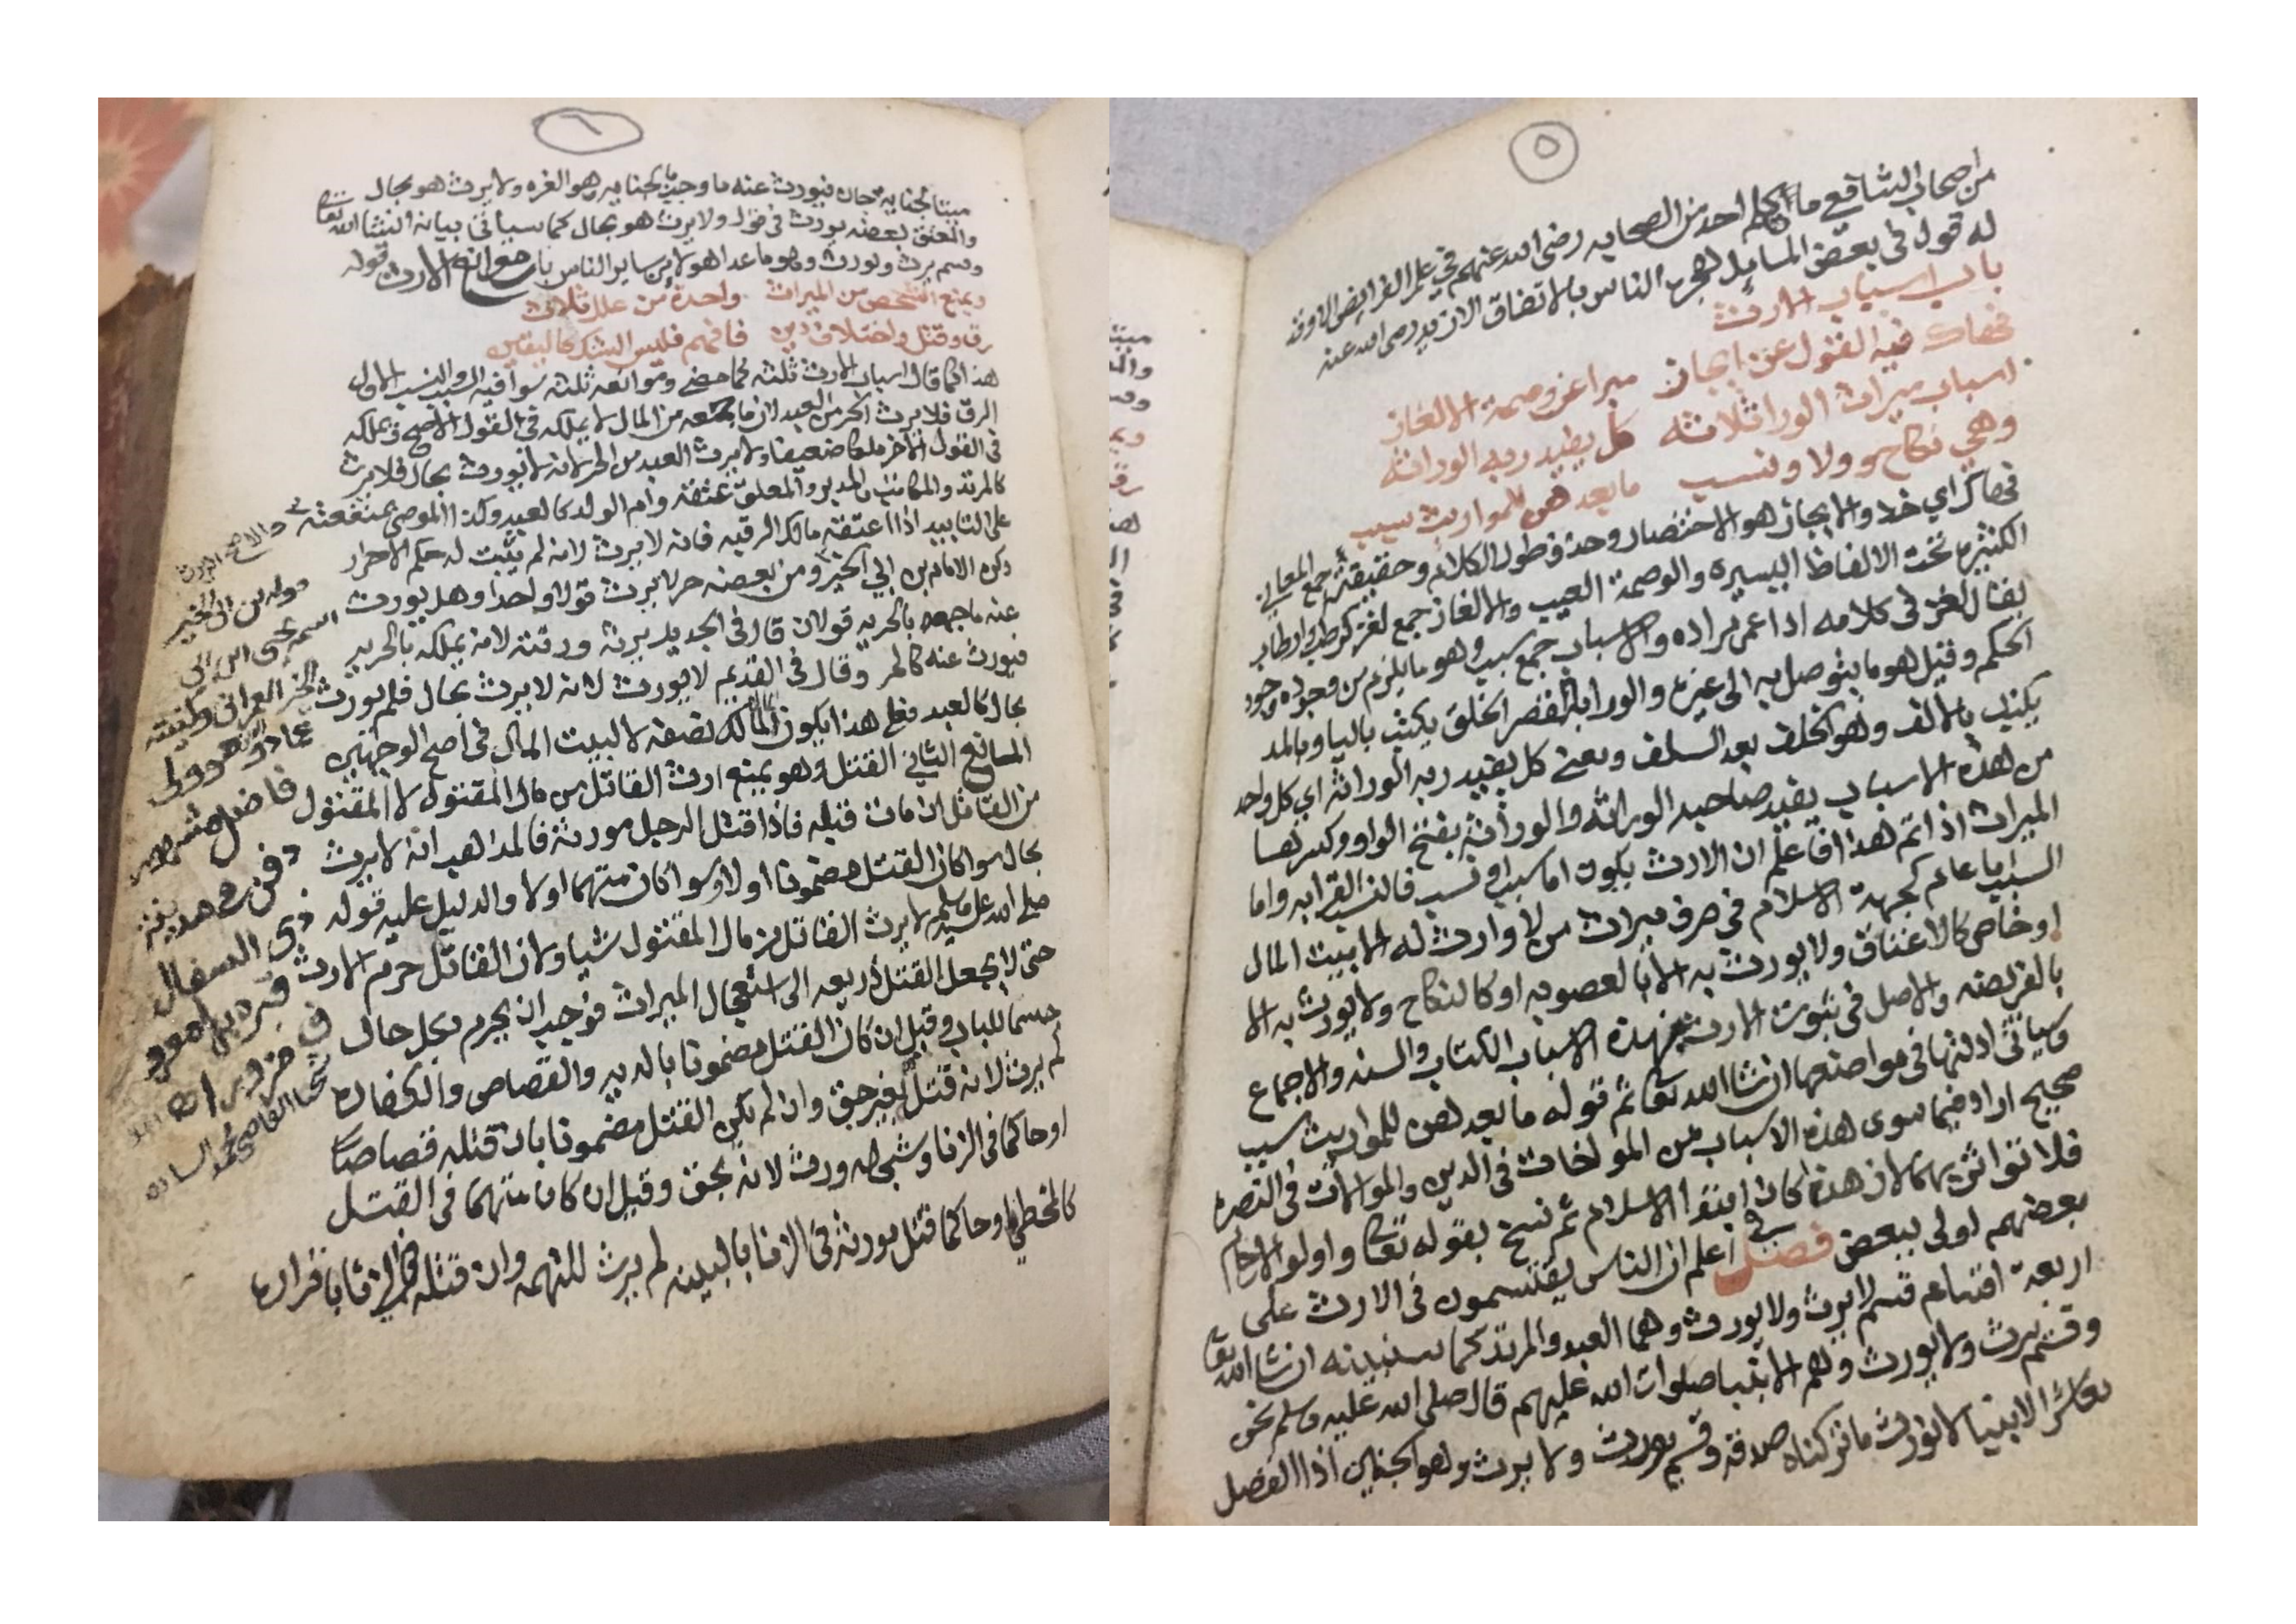 ٥
من اصحاب الشافعي ما تكلم احد من الصحابه رضي الله عنهم في علم الفرايض الا وقد
له قول في بعض المسايل هجره الناس بالاتفاق الا زيد رضي الله عنه
باب اسباب الارث
فهاك فيه القول عن ايجاز مبرا عن وصمة الالغاز
اسباب ميراث الورا ثلاثه كل يفيد ربه الوراثه
وهي نكاح وولا ونسب ما بعدهن للمواريث سبب
فهاك اي خذ والايجاز هو الاختصار وحذف طول الكلام وحقيقته جمع المعاني
الكثيره تحت الالفاظ اليسيره والوصمة العيب والالغاز جمع لغز كرطب وارطاب
يقال لغز في كلامه اذا عمى مراده والاسباب جمع سبب وهو ما يلزم من وجوده وجود
الحكم وقيل هو ما يتوصل به الى غيره والورا بالقصر الخلق يكتب باليا وبالمد
يكتب بالالف وهو الخلف بعد السلف ومعنى كل يفيد ربه الوراثه اي كل واحد
من هذه الاسباب يفيد صاحبه الوراثه والوراثه بفتح الواو وكسرها
الميراث اذا تم هذا فاعلم ان الارث يكون اما بسبب او نسب فالنسب القرابه واما
السبب اما عام كجهة الاسلام في صرف ميراث من لا وارث له الا بيت المال
او خاص كالاعتاق ولا يورث به الا بالعصوبه او كالنكاح ولا يورث به الا
بالفريضه والاصل في ثبوت الارث بهذه الاسباب الكتاب والسنه والاجماع
وسياتي ادلتها في مواضعها ان شا الله تعا ثم قوله ما بعدهن للمواريث سبب
صحيح اراد فيما سوى هذه الاسباب من المواخات في الدين والموالات في النصره
فلا توارث بهما لان هذه كان ابتدا الاسلام ثم نسخ بقوله تعا واولوا الارحام
بعضهم اولى ببعض فصل في اعلم ان الناس يقتسمون في الارث على
اربعة اقسام قسم لا يرث ولا يورث وهما العبد والمرتد كما سنبينه ان شا الله تعا
وقسم يرث ولا يورث وهم الانبيا صلوات الله عليهم قال صلى الله عليه وسلم نحن
معاشر الانبيا لا نورث ما تركناه صدقه وقسم يورث ولا يرث وهو الجنين اذا انفصل
٦
ميتا بجنايه جان فيورث عنه ما وجب بالجنايه وهو الغره ولا يرث هو بحال
والمعتق بعضه يورث في قول ولا يرث هو بحال كما سياتي بيانه ان شا الله تعا
وقسم يرث ويورث وهو ما عدا هولا من ساير الناس باب موانع الارث قوله
ويمنع الشخص من الميراث واحدة من علل ثلاث
رق وقتل واختلاف دين فافهم فليس الشك كاليقين
هذا كما قال اسباب الارث ثلثه كما مضى وموانعه ثلثه سوا فيه السبب والنسب الاول
الرق فلا يرث الحر من العبد لان ما معه من المال لا يملكه في القول الاصح ويملكه
في القول الاخر ملكا ضعيفا ولا يرث العبد من الحر لانه لا يورث بحال فلا يرث
كالمرتد والمكاتب والمدبر والمعلق عتقه وام الولد كالعبد وكذا الموصى بمنفعته
على التابيد اذا اعتقه مالك الرقبه فانه لا يرث لانه لم يثبت له حكم الاحرار
ذكره الامام بن ابي الخير ومن بعضه حر لا يرث قولا واحدا وهل يورث
عنه ما جمعه بالحريه قولان قال في الجديد يرثه ورثته لانه يملكه بالحريه
فيورث عنه كالحر وقال في القديم لا يورث لانه لا يرث بحال فلم يورث
بحال كالعبد فعلى هذا يكون لمالك نصفه لا لبيت المال في اصح الوجهين
المانع الثاني القتل وهو يمنع ارث القاتل من مال المقتول لا المقتول
من القاتل ان مات قبله فاذا قتل الرجل مورثه فالمذاهب انه لا يرث
بحال سوا كان القتل مضمونا اولا وسوا كان متهما اولا والدليل عليه قوله
صلى الله عليه وسلم لا يرث القاتل من مال المقتول شيا ولان القاتل حرم الارث
حتى لا يجعل القتل ذريعه الى استعجال الميراث فوجب ان يحرم بكل حال
حسما للباب وقيل ان كان القتل مضمونا بالديه والقصاص والكفاره
لم يرث لانه قتل بغير حق وان لم يكن القتل مضمونا بان قتله قصاصا
او حاكما في الزنا وشبهه ورث لانه بحق وقيل ان كان متهما في القتل
كالمخطي او حاكما قتل مورثه في الزنا بالبينه لم يرث للتهمه وان قتله في الزنا باقراره
بن ابي الخير
اسمه يحيى ابن ابي
الخير العمراني